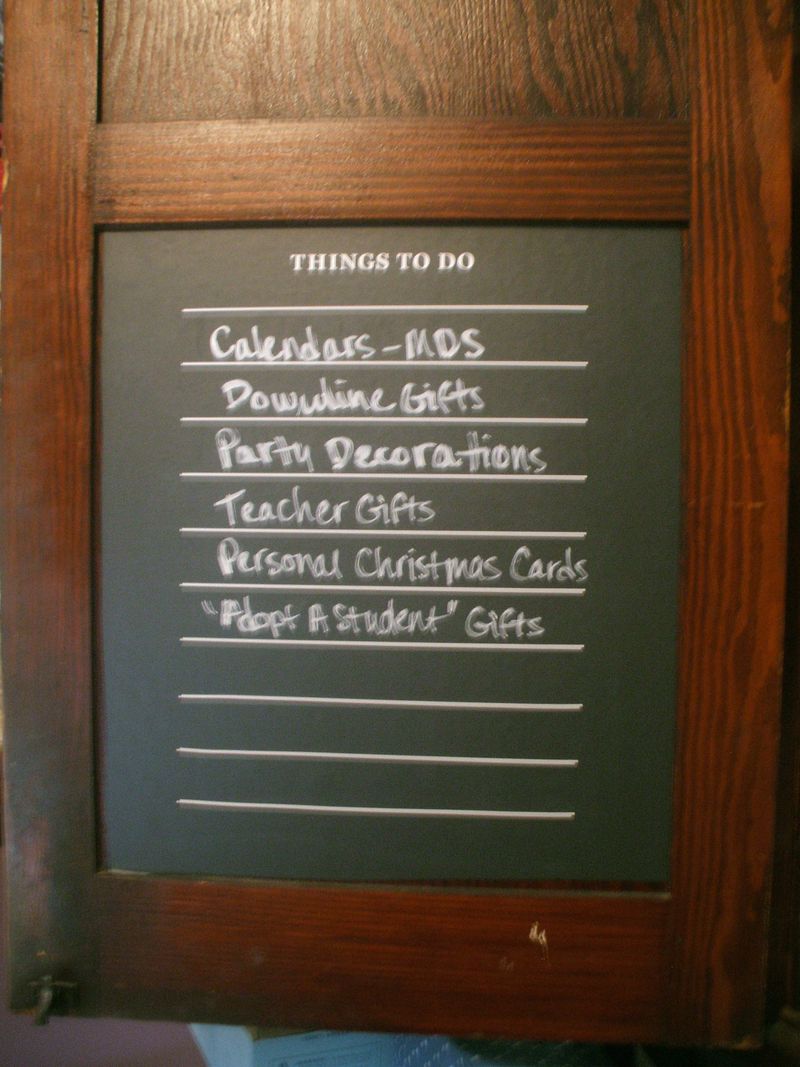 THINGS TO DO
Calendars - MDS
Downline Gifts
Party Decorations
Teacher Gifts
Personal Christmas Cards
"Adopt A Student" Gifts